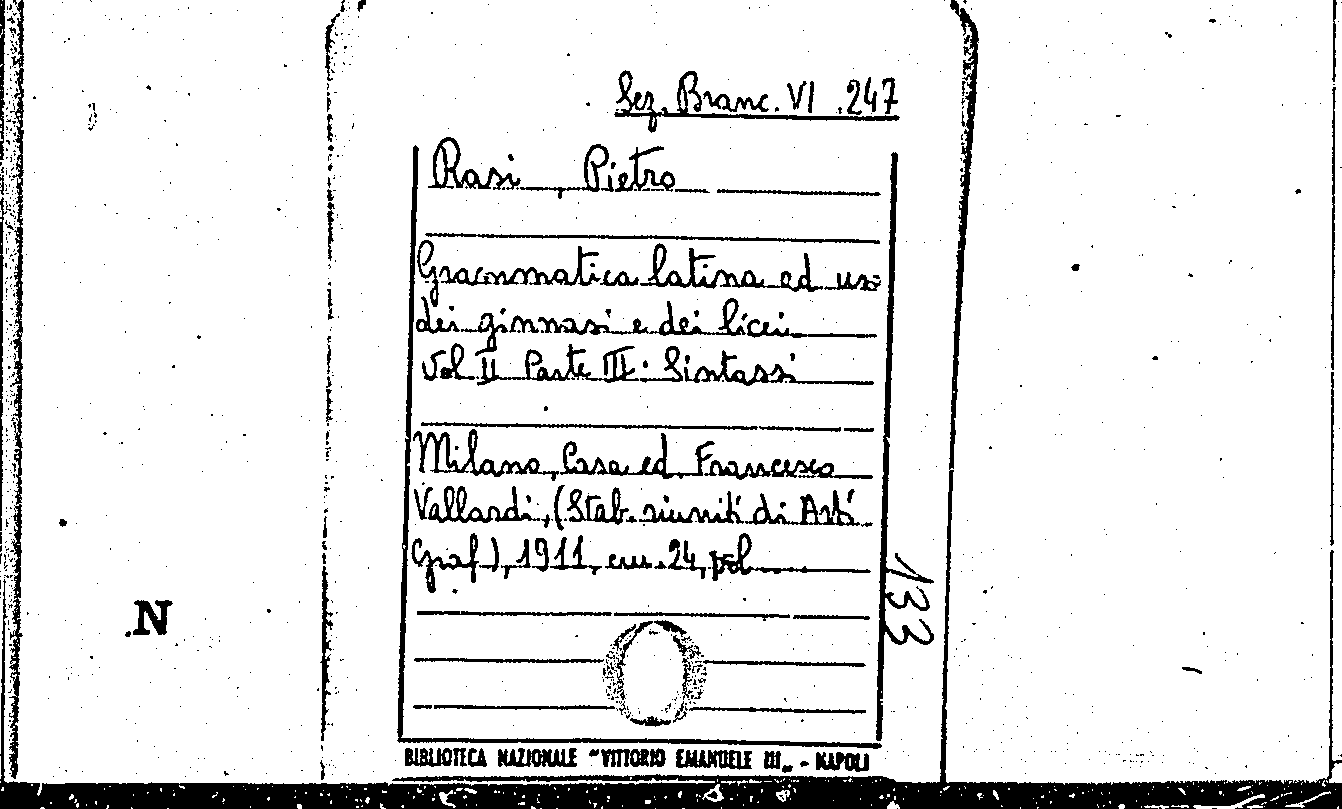 Sez. Branc. VI .247
Rasi , Pietro
Grammatica latina ed uso
dei ginnasi e dei licei
Vol II Parte III: Sintassi
Milano, Casa ed. Francesco
Vallardi, (Stab. riuniti di Arti
Graf), 1911, cm. 24, vol
133
.N
BIBLIOTECA NAZIONALE "VITTORIO EMANUELE III„ - NAPOLI